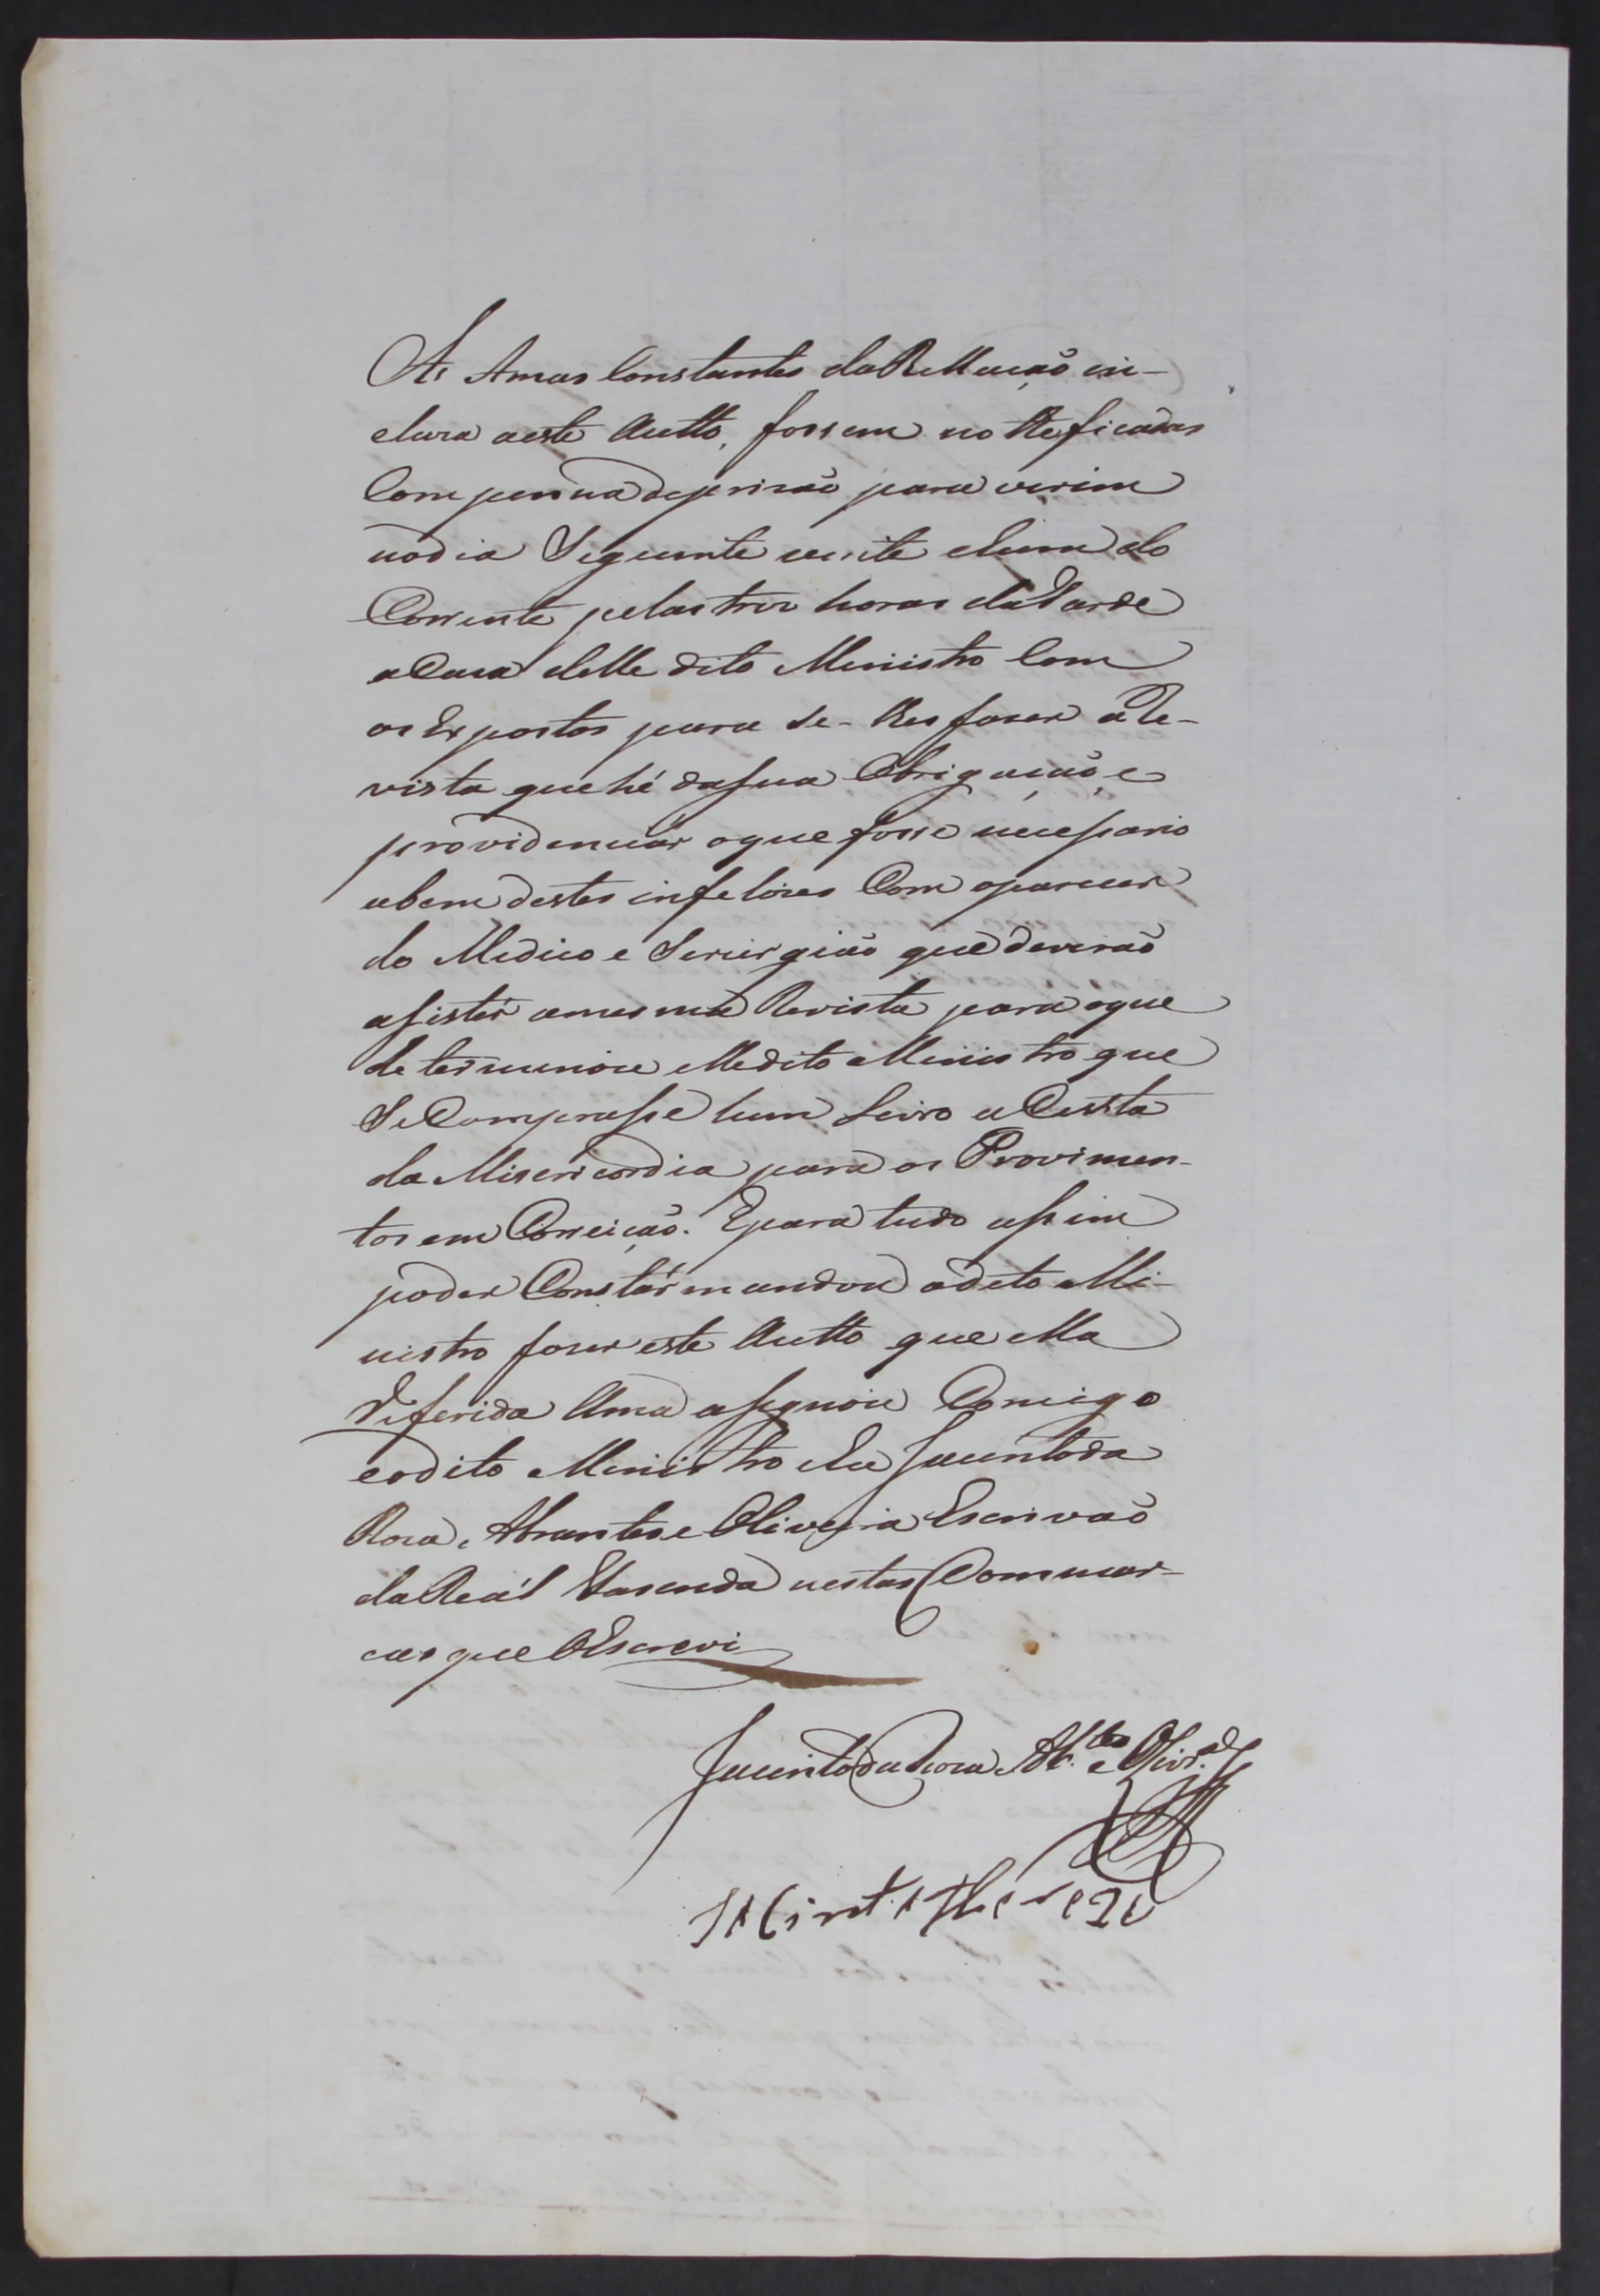 As Amas Constantes da Rellacaõ in-
cluza aeste Autto, fossem notteficadas
Com penna de prizaõ para virim
nodia Seguinte vinte ehum do
Corrente pelas trez horas da Tarde
aCaza delle dito Ministro Com
os Expostos para se-lhes fazer a Re-
vista que hé dasua Obrigaçaõ, e
providenciár oque fosse necessario
abem destes infelizes Com oparecer
do Medico e Serurgiaõ que deveraõ
asistir amesma Revista para oque
determinou elledito Ministro que
Se Comprasse hum Livro a Custa
da Misericordia para os Provimen-
tos em Correiçaõ. Epara tudo assim
poder Constár mandou odito Mi-
nistro fazer este Autto que ella
Referida Ama assignou Comigo
eodito Ministro eEu Jacinto da
Roza, Abrantes e Oliveira Escrivaõ
da Reál Fazenda nestas Commar-
cas que OEscrevi
Jacinto da Roza Ab.tes e Olivr.a
Jacinta Thereza